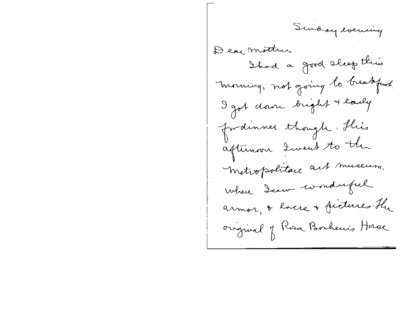 Sunday evening
Dear Mother
I had a good sleep this
morning, not going to breakfast.
I got down bright & early
for dinner though. This
afternoon I went to the
Metropolitan art museum.
where I saw wonderful
armor, & laces & pictures. The
original of Rosa Bonheur's Horse